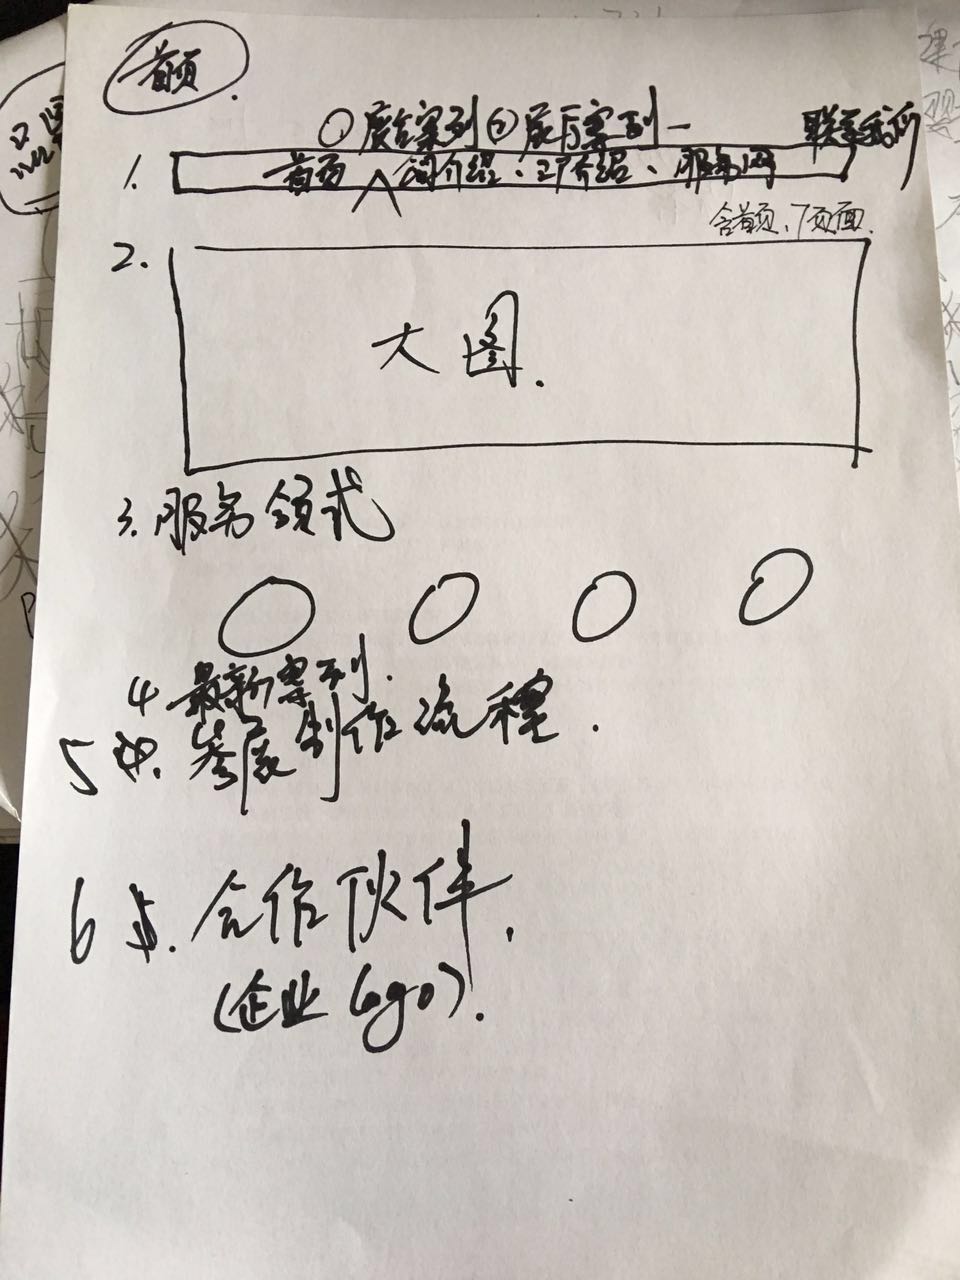 首页.
①展台案列②展厅案列一 联系我们
1. 首页 公司介绍、工厂介绍、服务网
含首页、7页面.
2.
大图.
3.服务领式
4 最新案列.
5 参展制作流程.
6 5.合作伙伴.
(企业logo).